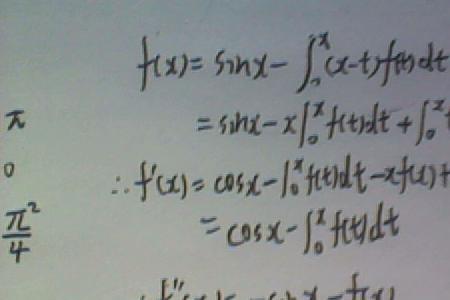 f(x) = sinx - ∫₀ˣ (x-t) f(t) dt
π
= sinx - x∫₀ˣ f(t) dt + ∫₀ˣ t
0
∴ f'(x) = cosx - ∫₀ˣ f(t) dt - x f(x) +
π²/4
= cosx - ∫₀ˣ f(t) dt